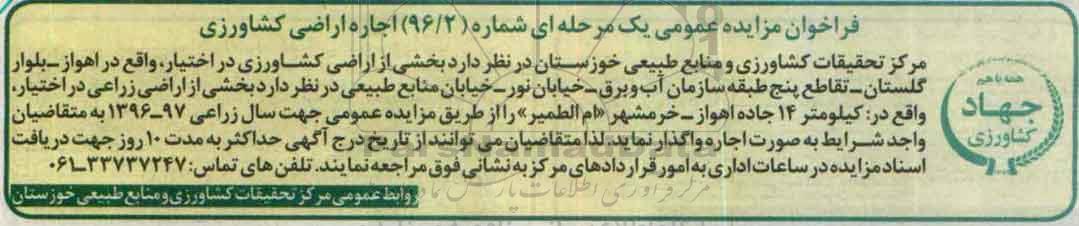 فراخوان مزایده عمومی یک مرحله ای شماره (۹۶/۲) اجاره اراضی کشاورزی
مرکز تحقیقات کشاورزی و منابع طبیعی خوزستان در نظر دارد بخشی از اراضی کشاورزی در اختیار، واقع در اهواز ـ بلوار
گلستان ـ تقاطع پنج طبقه سازمان آب و برق ـ خیابان نور ـ خیابان منابع طبیعی در نظر دارد بخشی از اراضی زراعی در اختیار،
واقع در: کیلومتر ۱۴ جاده اهواز ـ خرمشهر «ام الطمیر» را از طریق مزایده عمومی جهت سال زراعی ۹۷ـ۱۳۹۶ به متقاضیان
واجد شرایط به صورت اجاره واگذار نماید. لذا متقاضیان می توانند از تاریخ درج آگهی حداکثر به مدت ۱۰ روز جهت دریافت
اسناد مزایده در ساعات اداری به امور قراردادهای مرکز به نشانی فوق مراجعه نمایند. تلفن های تماس: ۳۳۷۳۷۲۴۷ـ۰۶۱
روابط عمومی مرکز تحقیقات کشاورزی و منابع طبیعی خوزستان
همه با هم
جهاد
کشاورزی